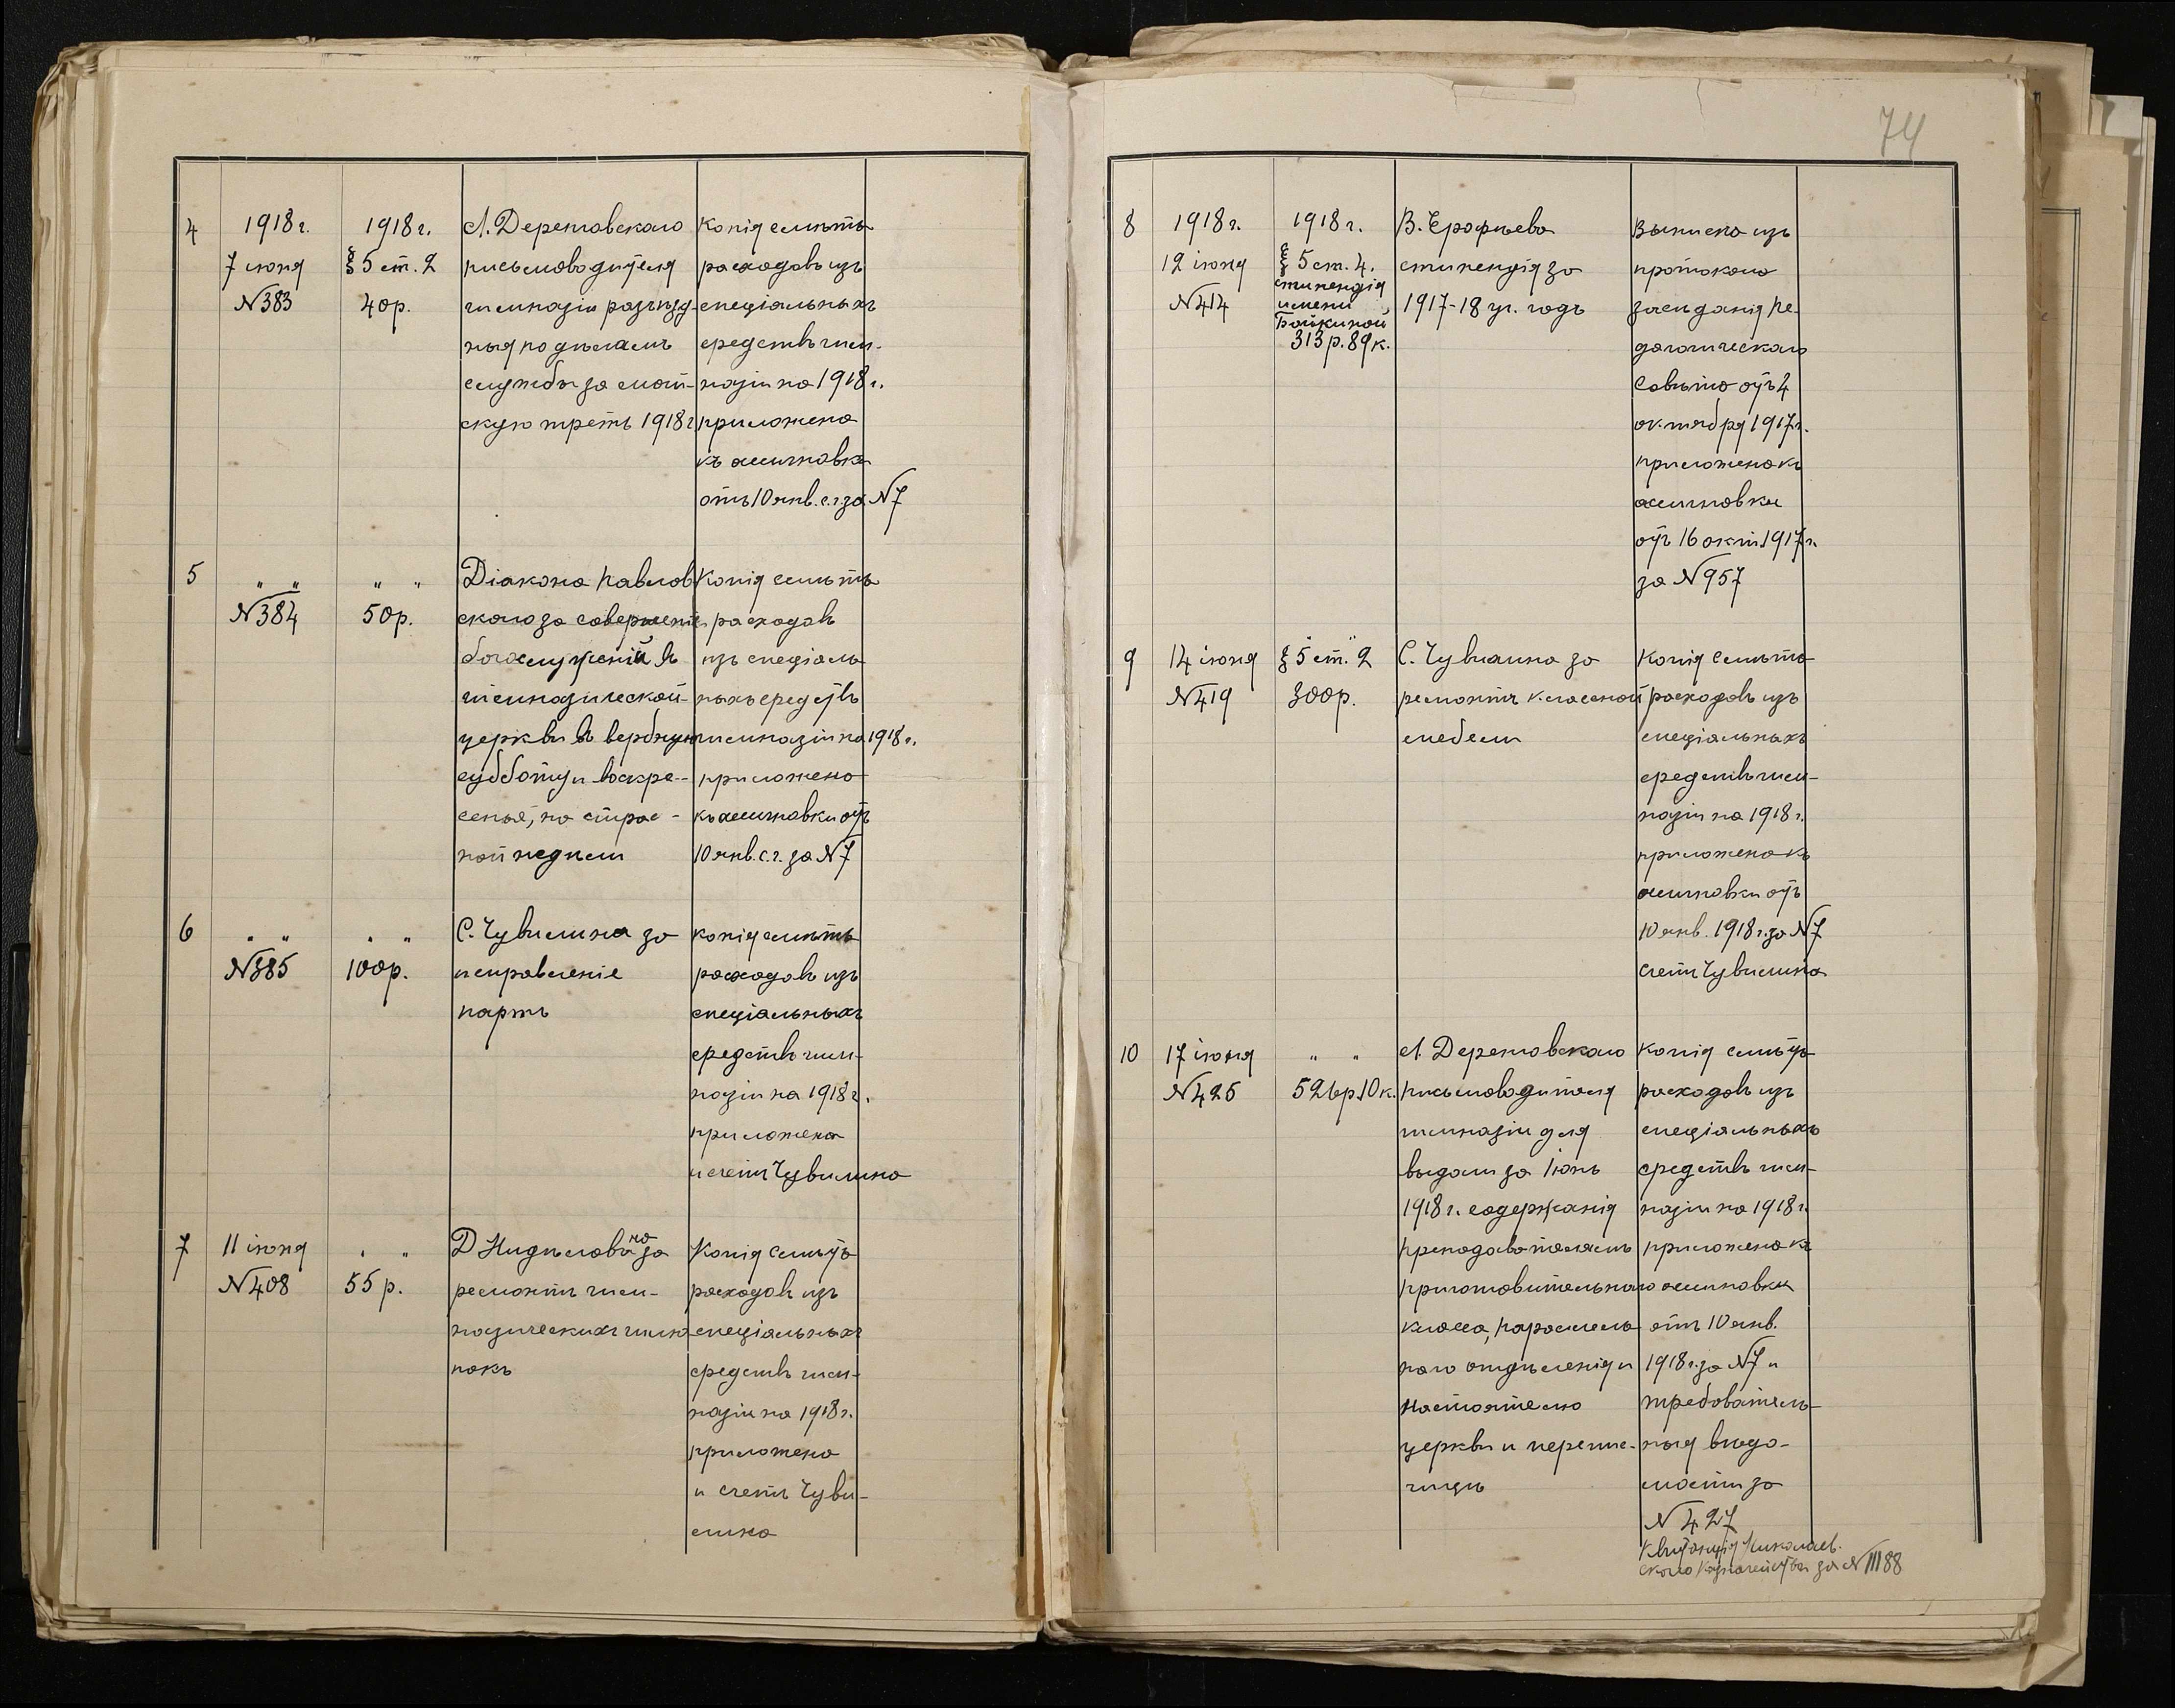 74
4
1918 г.
7 іюня
№383
1918 г.
§ 5 ст. 2
40р.
Л. Деретовскаго
письмоводителя
гимназіи разъѣзд-
ныя по дѣламъ
службы за май-
скую треть 1918г
Копія смѣты
расходовъ изъ
спеціальныхъ
средствъ гим-
назіи на 1918 г.
приложена
къ ассигновкѣ
отъ 10 янв. с.г. за №7
5
" "
№384
" "
50р.
Діакона Павлов
скаго за совершеніе
богослуженій въ
гимназической
церкви въ вербную
субботу и воскре-
сенье, на страс-
ной недѣли
Копія смѣты
расходовъ
изъ спеціаль-
ныхъ средствъ
гимназіи на 1918 г.
приложена
къ ассигновки отъ
10 янв. с.г. за №7
6
" "
№385
" "
100р.
С. Чувилина за
исправленіе
партъ
Копія смѣты
расходовъ изъ
спеціальныхъ
средствъ гим-
назіи на 1918 г.
приложена
и счетъ Чувилина
7
11 іюня
№408
" "
55 р.
Д Нидѣлова на за
ремонтъ гим-
назическихъ
нокъ
Копія смѣты
расходовъ изъ
спеціальныхъ
средствъ гим-
назіи на 1918 г.
приложена
и счетъ Чуви-
лина
8
1918 г.
12 іюня
№414
1918 г.
§ 5 ст. 4.
стипендія
имени
Бойкиной
313 р. 89 к.
В. Ерофѣева
стипендія за
1917-18 уч. годъ
Выписка изъ
протокола
засѣданія Пе-
дагогическаго
Совѣта отъ 4
октября 1917 г.
приложена къ
ассигновки
отъ 16 окт. 1917 г.
за №957
9
14 іюня
№419
§ 5 ст. 2
300р.
С. Чувилина за
ремонтъ классной
мебели
Копія смѣты
расходовъ изъ
спеціальныхъ
средствъ гим-
назіи на 1918 г.
приложена къ
ассигновки отъ
10 янв. 1918 г. за №7
счетъ Чувилина
10
17 іюня
№425
" "
526р.10к.
Л. Деретовскаго
письмоводителя
гимназіи для
выдачи за Іюнь
1918 г. содержанія
преподавателямъ
приготовительнаго
класса, параллель
наго отдѣленія и
настоятелю
церкви и перепис-
чицѣ
Копія смѣты
расходовъ изъ
спеціальныхъ
средствъ гим-
назіи на 1918 г.
приложена къ
ассигновки
отъ 10 янв.
1918 г. за №7 и
требователь-
ныя вѣдо-
мости за
№ 427
Квитанція Николаев.
скаго Казначейства за № 11188